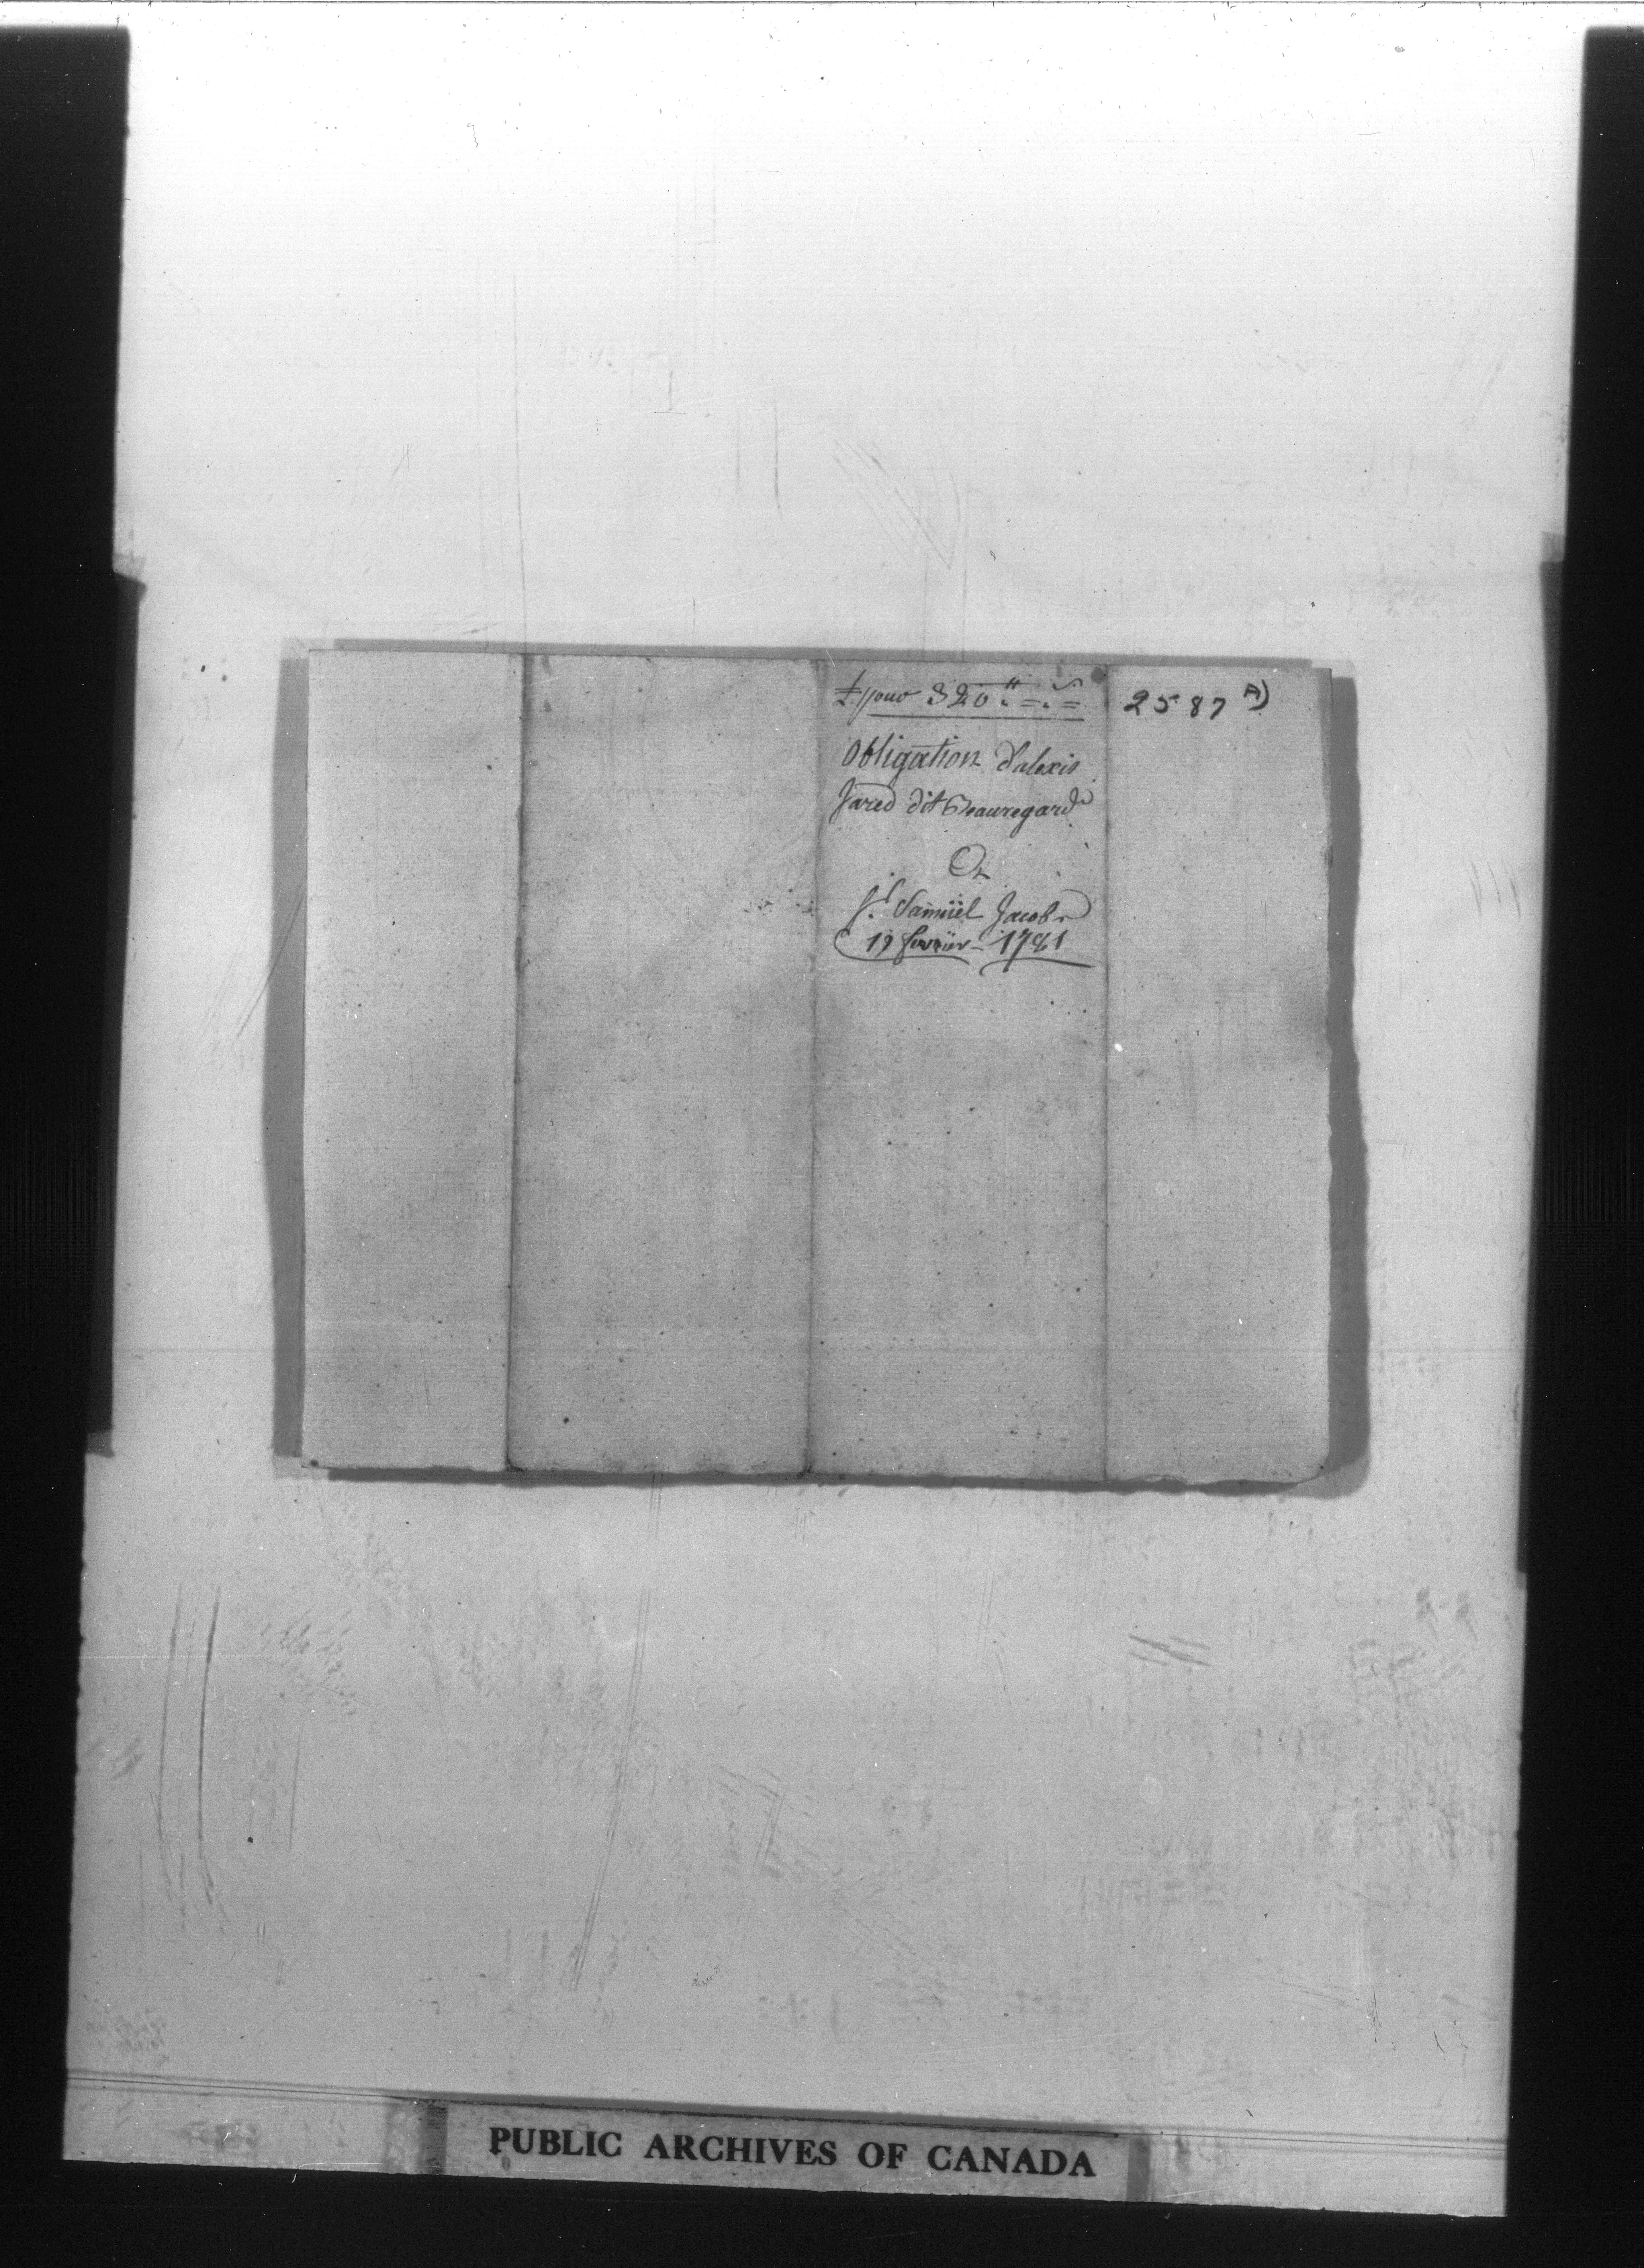 pour 320
2587 A)
obligation d'alexis
Jared dit Beauregard
A
Sr. Samüel Jacobs
19 fevrier 1781
PUBLIC ARCHIVES OF CANADA